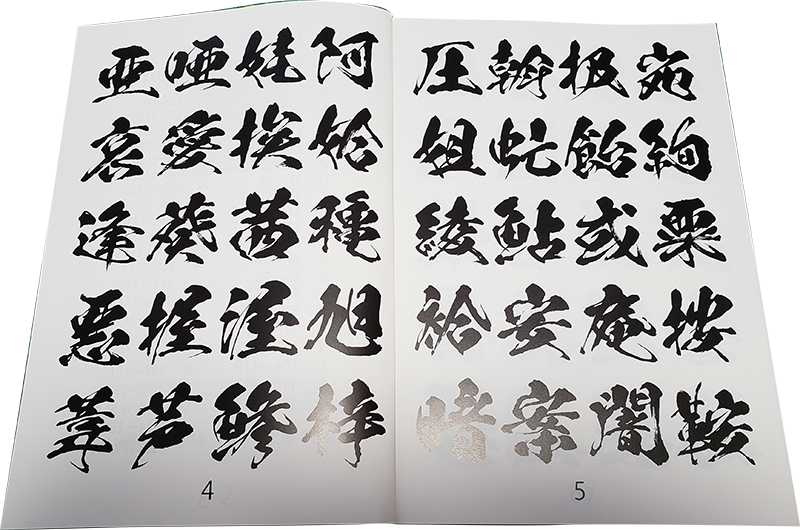 亜唖娃阿
哀愛挨姶
逢葵茜穐
悪握渥旭
葦芦鯵梓
4
圧斡扱宛
姐虻飴絢
綾鮎或粟
袷安庵按
暗案闇鞍
5